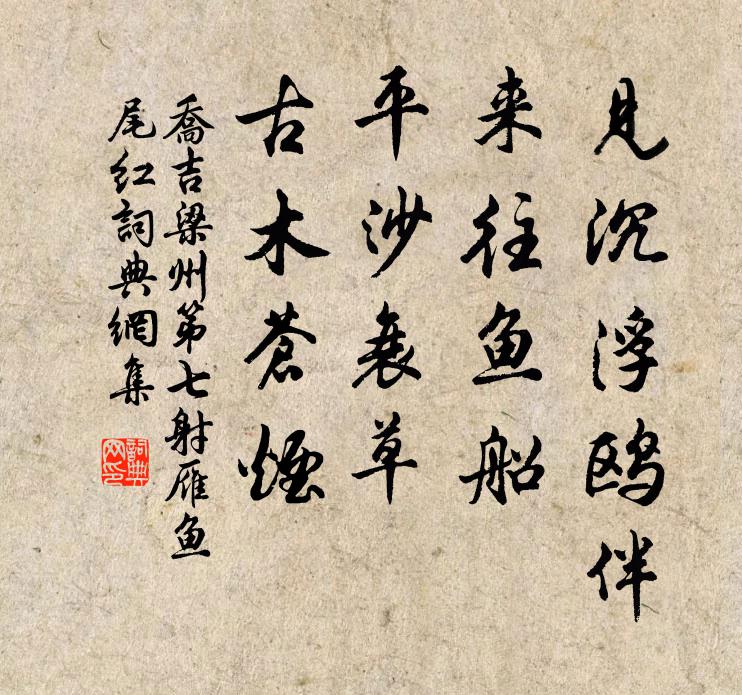 見沉浮鸥伴
来往鱼船
平沙衰草
古木蒼煙
喬吉梁州第七射雁魚
尾红詞典網集
詞典网印